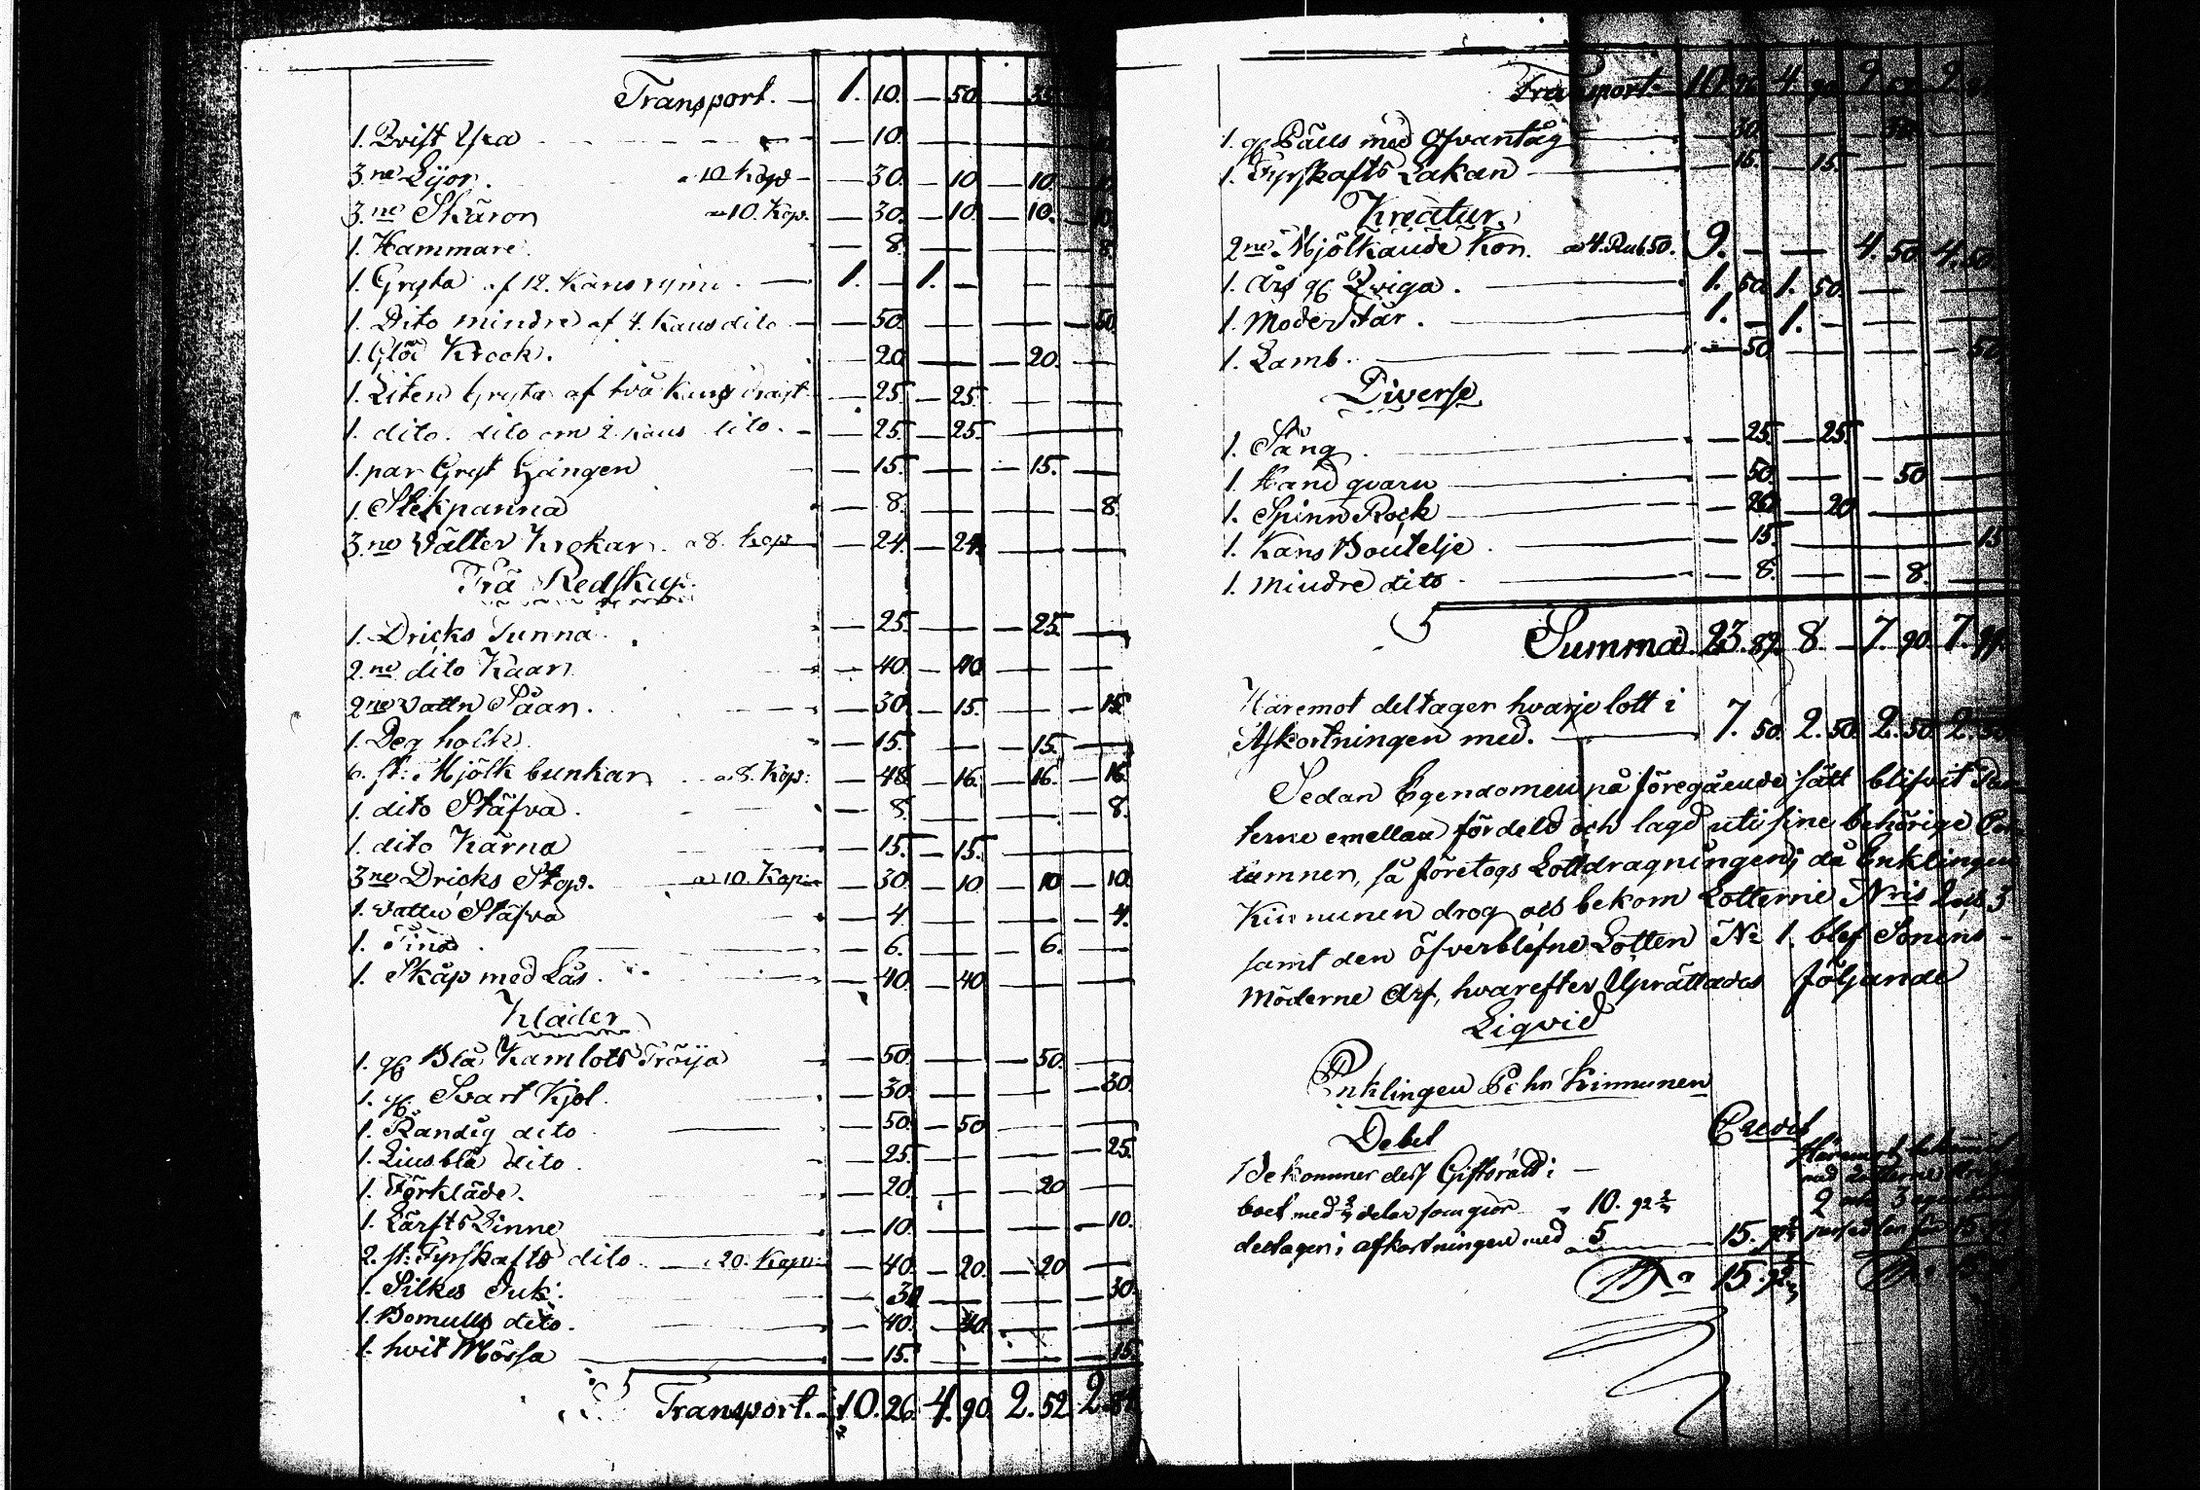 Transport. — 1. 10. — 50 — 35
1. Qvist Yxa — 10.
3.ne Lÿor. a 10 Kop — 30. — 10 — 10. — 10
3.ne Skäror a 10. Kop. — 30. — 10. — 10. — 10
1. Hammare. — 8. — — 8.
1. Gryta af 12. Kans rymd. — 1. — 1. —
1. Dito mindre af 4. Kans dito — 50. — — — 50
1. Glöd Krock. — 20 — — 20. —
1. Liten Gryta af två Kans dragt — 25. — 25. — —
1. dito. dito om 2. Kans dito. — 25. — 25. —
1. par Gryt Hängen — 15. — — 15. —
1. Stekpanna — 8. — — — 8.
3.ne Välter Krokar. a 8. Kop — 24. — 24. — —
Trä Redskap.
1. Dricks Tunna. — 25. — — 25. —
2.ne dito Kaar — 40. — 40. — —
2ne Vattn Såar. — 30. — 15. — — 15
1. Deg holk. — 15. — — 15. —
6. st: Mjölk bunkar a 8. Kop: — 48. — 16. — 16. — 16.
1. dito Stäfva. — 8. — — — 8.
1. dito Kärna — 15. — 15. —
3ne Dricks Stop. a 10. Kop: — 30. — 10 — 10 — 10.
1. Vattn Stäfva — 4. — — — 4.
1. Tina. — 6. — — 6. —
1. Skåp med Lås. — 40. — 40. — —
Kläder
1. gl Blå Kamlots Tröija — 50. — — 50. —
1. gl. Svart Kjol. — 30. — — — 30.
1. Randig dito — 50. — 50. — —
1. Liusblå dito. — 25. — — — 25.
1. Förkläde. — 20. — — 20 —
1. Lärfts Linne — 10. — — — 10.
2. st: Fyrskafts dito a 20. Kop: — 40. — 20. — 20 —
1. Silkes Duk. — 30. — — — 30.
1. Bomulls dito. — 40. — 40. — —
1. hvit Mössa — 15. — — — 15.
Transport. 10. 26. 4. 90. 2. 52. 2.
Transport. 10. 26. 4. 90. 2. 52. 2.
1. gl Päls med Ofvantåg — 30. — — 30
1. Fyrskafts Lakan — 15. — 15. —
Kreatur.
2ne Mjölkande Kor. a 4. Rub. 50. 9. — — 4. 50. 4. 50.
1. års gl Qviga. 1. 50. 1. 50. — —
1. Moder Får. 1. — 1. —
1. Lamb. — 50 — — — 50
Diverse
1. Säng. — 25. — 25. —
1. Hand qvarn — 50. — — 50 —
1. Spinn Rock — 20 — 20 —
1. Kans Boutelje. — 15. — — 15
1. mindre dito. — 8. — — 8. —
Summa. 23. 89. 8. — 7. 90. 7. 99.
Häremot deltager hvarje lott i
Afkortningen med. 7. 50. 2. 50. 2. 50. 2. 50
Sedan Egendomen på föregående sätt blifvit
terne emellan fördeld och lagd uti sine behörige
lumner, så företogs Lottdragningen; då Enklingen
Kinnunen drog och bekom Lotterne Nris 2 och 3
samt den öfverblefne Lotten No 1. blef Sonens
Möderne Arf, hvarefter Upprättades följande
Liqvid
Enklingen Pehr Kinnunen
Debet Credit
Bekommer dess Giftorätt i Häremot bekommit
boet med 2/3 delar som giör 10. 92 2/3 med Lotterne
deltager i afkortningen med 5 15. 92 2/3
Sa 15. 92 2/3